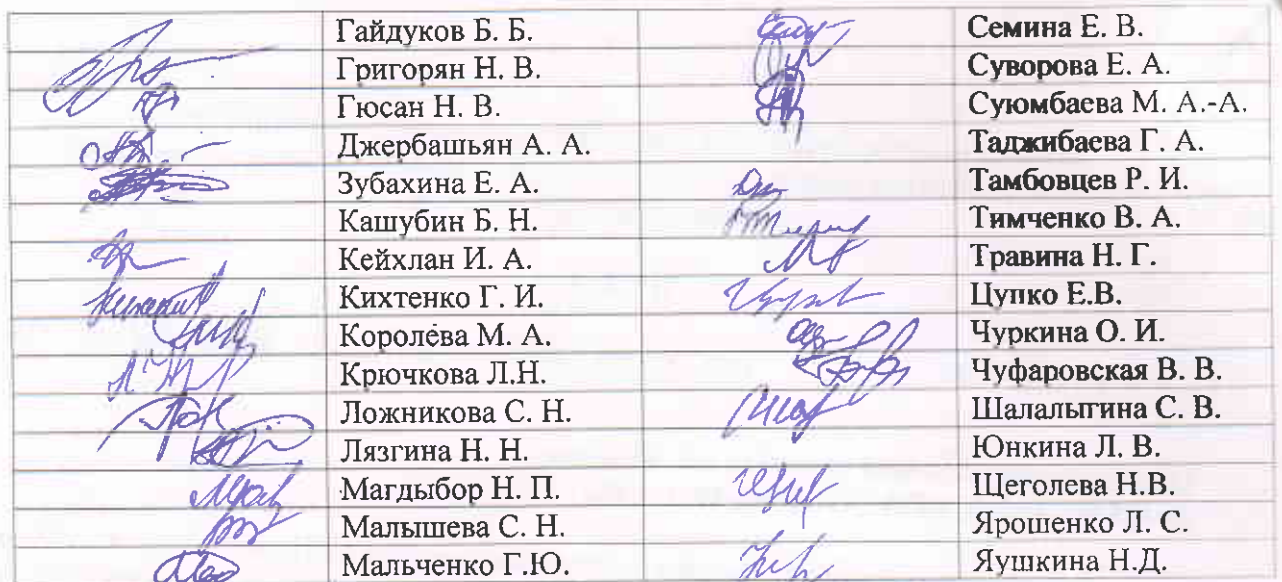 Гайдуков Б. Б. Семина Е. В.
Григорян Н. В. Суворова Е. А.
Гюсан Н. В. Суюмбаева М. А.-А.
Джербашьян А. А. Таджибаева Г. А.
Зубахина Е. А. Тамбовцев Р. И.
Кашубин Б. Н. Тимченко В. А.
Кейхлан И. А. Травина Н. Г.
Кихтенко Г. И. Цупко Е.В.
Королёва М. А. Чуркина О. И.
Крючкова Л.Н. Чуфаровская В. В.
Ложникова С. Н. Шалалыгина С. В.
Лязгина Н. Н. Юнкина Л. В.
Магдыбор Н. П. Щеголева Н.В.
Малышева С. Н. Ярошенко Л. С.
Мальченко Г.Ю. Яушкина Н.Д.